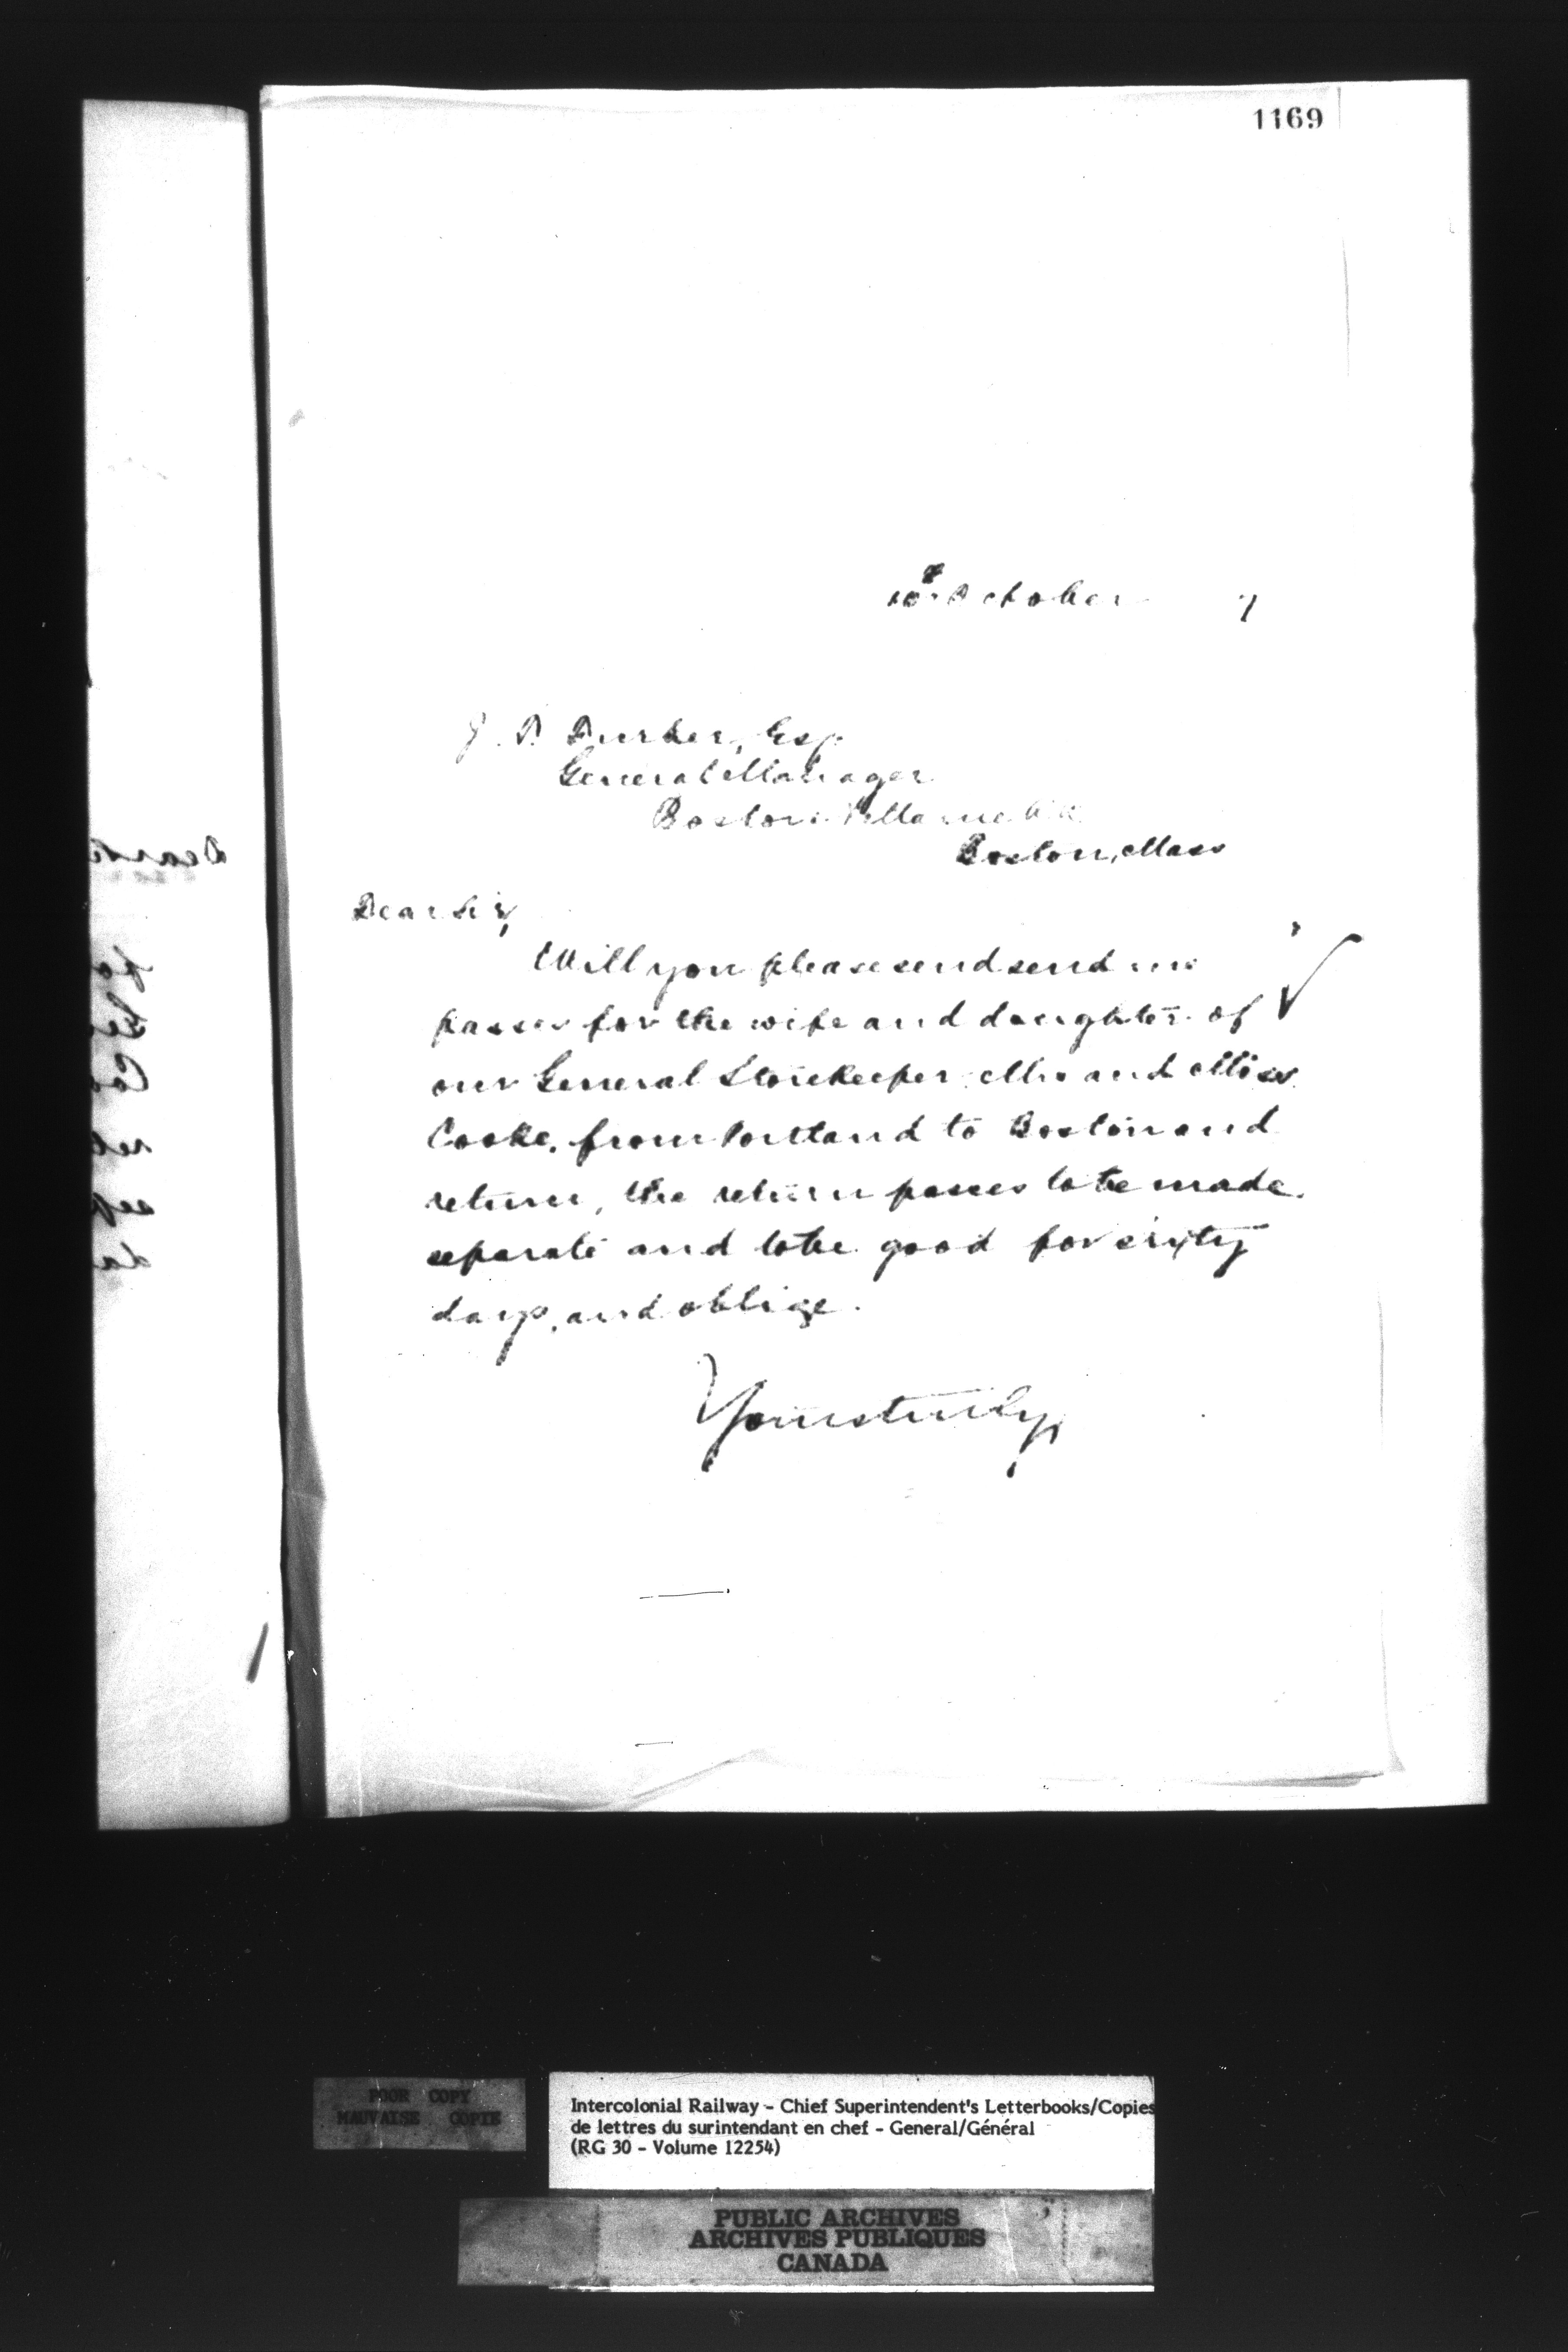 1169
10th October 7
J. T. Furber, Esq.
General Manager
Boston & Maine R.R.
Boston, Mass
Dear Sir,
Will you please send send me
passes for the wife and daughter of
our General Storekeeper, Mrs and Miss
Cooke, from Portland to Boston and
return, the return passes to be made
separate and to be good for sixty
days, and oblige.
Yours truly,
POOR COPY
MAUVAISE COPIE
Intercolonial Railway - Chief Superintendent's Letterbooks/Copies
de lettres du surintendant en chef - General/Général
(RG 30 - Volume 12254)
PUBLIC ARCHIVES
ARCHIVES PUBLIQUES
CANADA